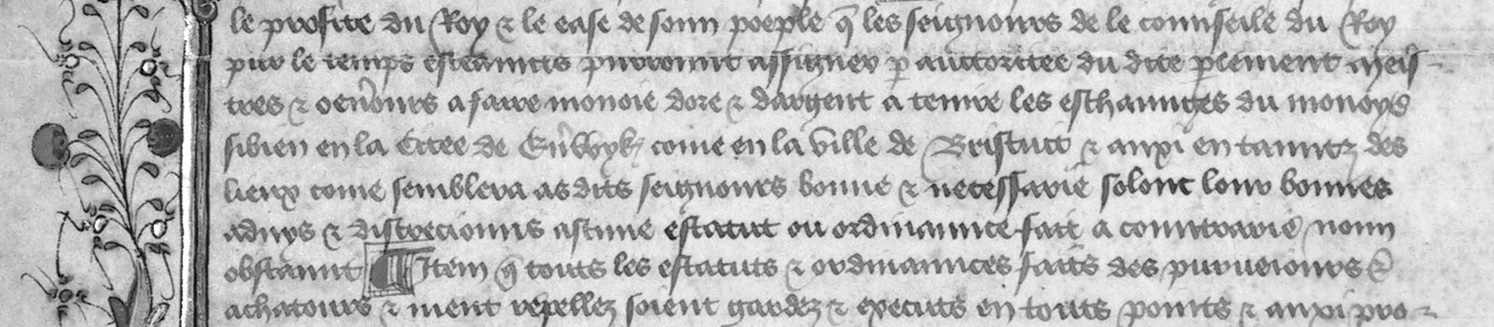 le profite du Roy & le ease de sonn poeple q̄ les seignours de le counseile du Roy
pur le temps esteauntz purrount assigner p̱ auctoritee du dite p̱lement meis-
tres & oevrours a faire monoie dore & dargent a tenire les eschaunges du monoye
sibien en la Citee de Ev̓wyk come en la ville de Bristutt & auxi en tauntz des
lieux come semblera as dits seignours bonne & necessarie solont lour bonnes
advys & discrecionns ascune estatut ou ordinaunce fait a countrarie nonn
obstannt Item q̄ touts les estatuts & ordinaunces faits des purveiours &
achatours & nient repellez soient gardez & executs en touts points & auxi pro-